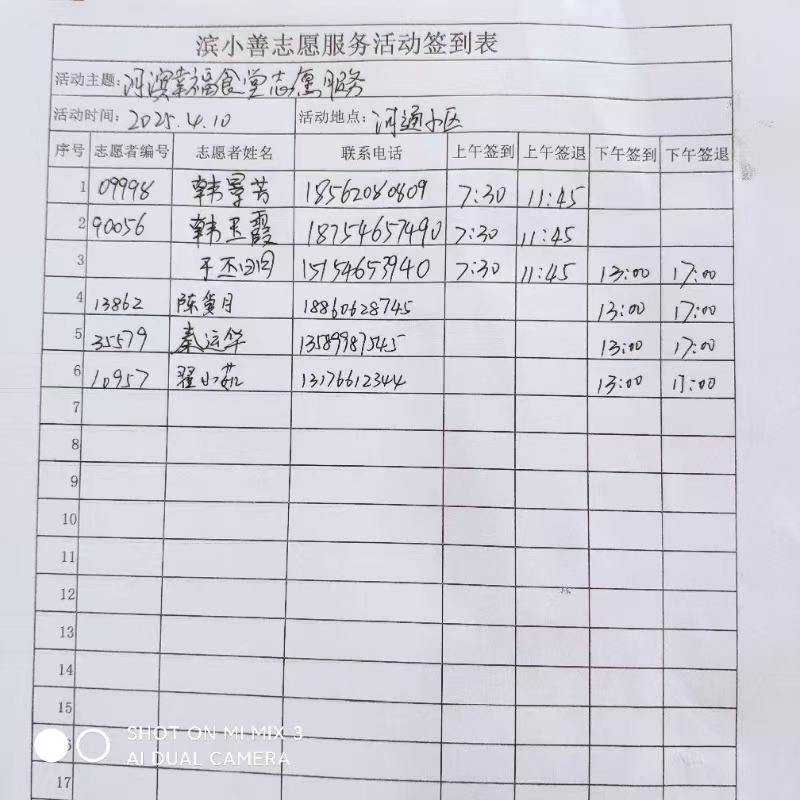 滨小善志愿服务活动签到表
活动主题:河滨幸福食堂志愿服务
活动时间: 2025.4.10 活动地点: 河通小区
序号 志愿者编号 志愿者姓名 联系电话 上午签到 上午签退 下午签到 下午签退
1 09998 韩景芳 18562080809 7:30 11:45
2 90056 韩玉霞 18754657490 7:30 11:45
3 15154653940 7:30 11:45 13:00 17:00
4 13862 陈 月 18860628745 13:00 17:00
5 35579 秦运华 13589987545 13:00 17:00
6 10957 翟小茹 13176612344 13:00 17:00
7
8
9
10
11
12
13
14
15
17
SHOT ON MI MIX 3
AI DUAL CAMERA